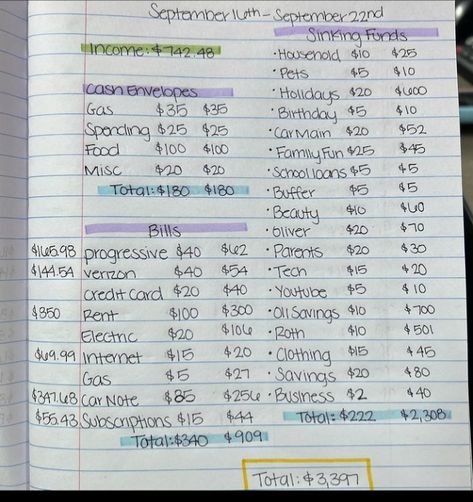 September 16th - September 22nd
Income: $742.48
Cash Envelopes
Gas $35 $35
Spending $25 $25
Food $100 $100
Misc $20 $20
Total: $180 $180
Bills
$165.98 progressive $40 $62
$144.54 verizon $40 $54
Credit Card $20 $40
$850 Rent $100 $300
Electric $20 $106
$69.99 Internet $15 $20
Gas $5 $27
$347.68 Car Note $85 $256
$55.43 Subscriptions $15 $44
Total: $340 $909
Sinking Funds
· Household $10 $25
· Pets $5 $10
· Holidays $20 $600
· Birthday $5 $10
· Car Main $20 $52
· Family Fun $25 $45
· School loans $5 $5
· Buffer $5 $5
· Beauty $10 $60
· Oliver $20 $70
· Parents $20 $30
· Tech $15 $20
· Youtube $5 $10
· Oli Savings $10 $700
· Roth $10 $501
· Clothing $15 $45
· Savings $20 $80
· Business $2 $40
Total: $222 $2,308
Total: $3,397